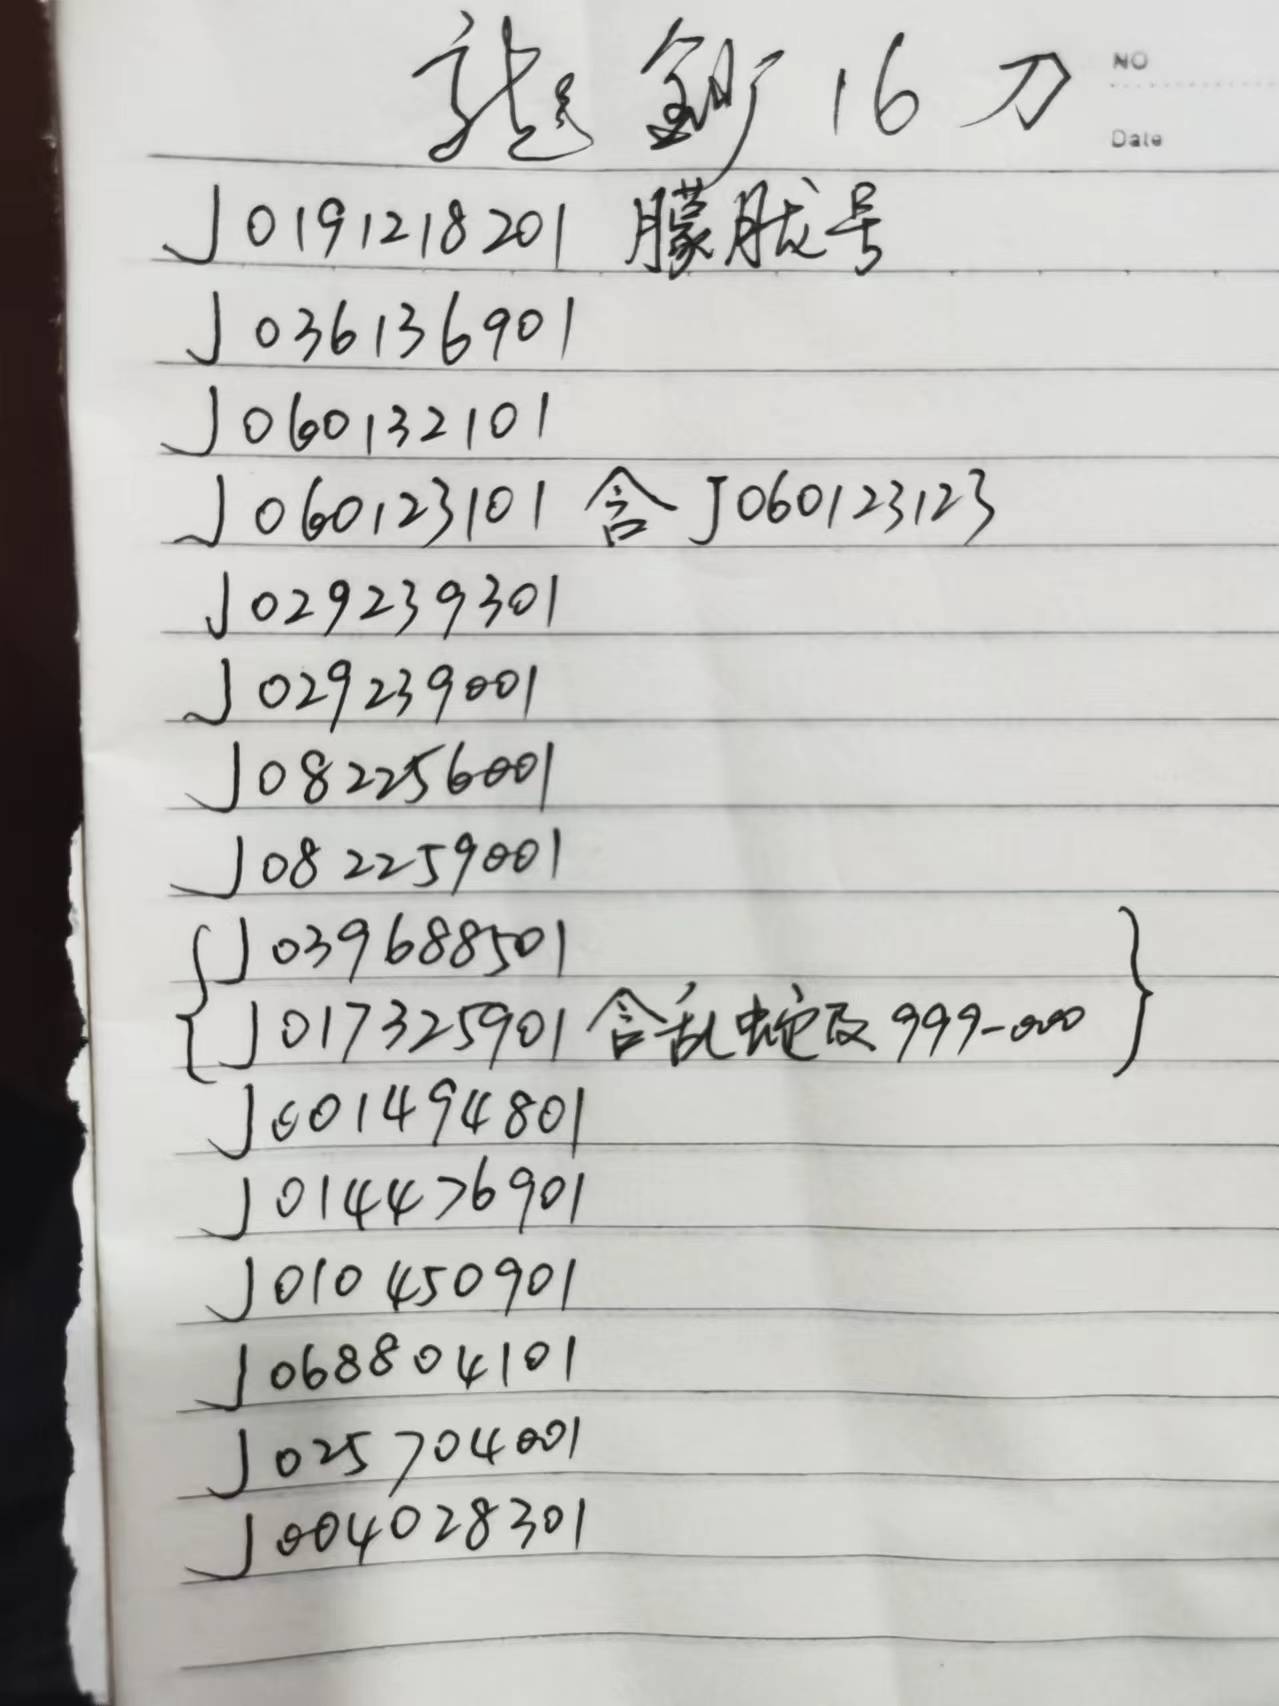 龍鈔16刀
NO
Date
J0191218201 朦胧号
J036136901
J060132101
J060123101 含J060123123
J029239301
J029239001
J082256001
J082259001
{J039688501
J017325901 含乱蛇及999-000}
J001494801
J014476901
J010450901
J068804101
J025704001
J004028301